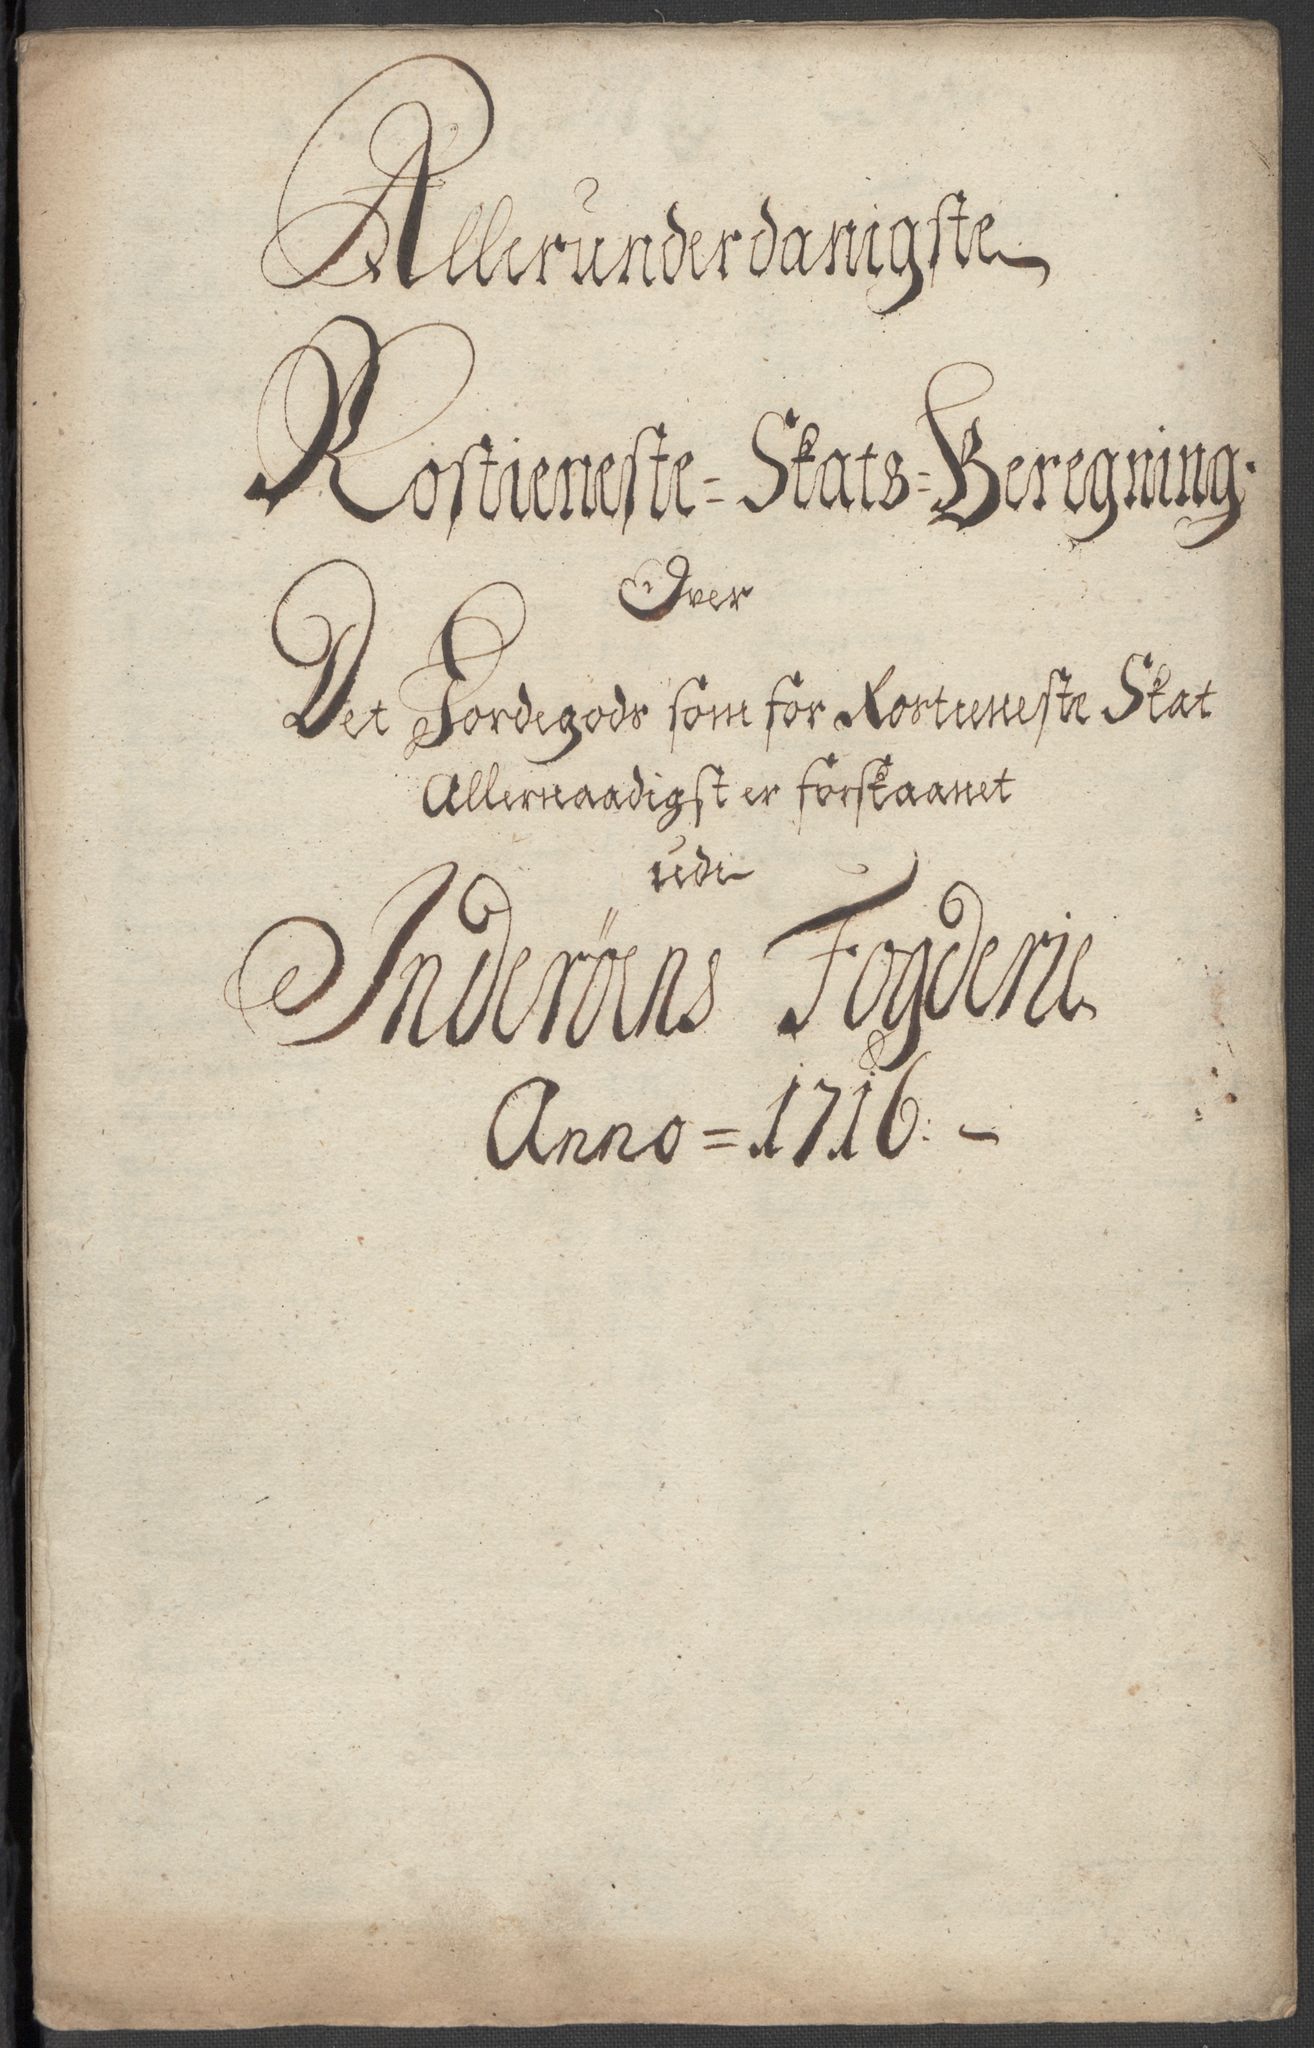 Allerunderdanigste
Rostieneste = Skats = Beregning.
Over
Det Jordegods som for Rostieneste Skat
Allernaadigst er forskaanet
udi
Inderöens Fogderie
Anno = 1716. -